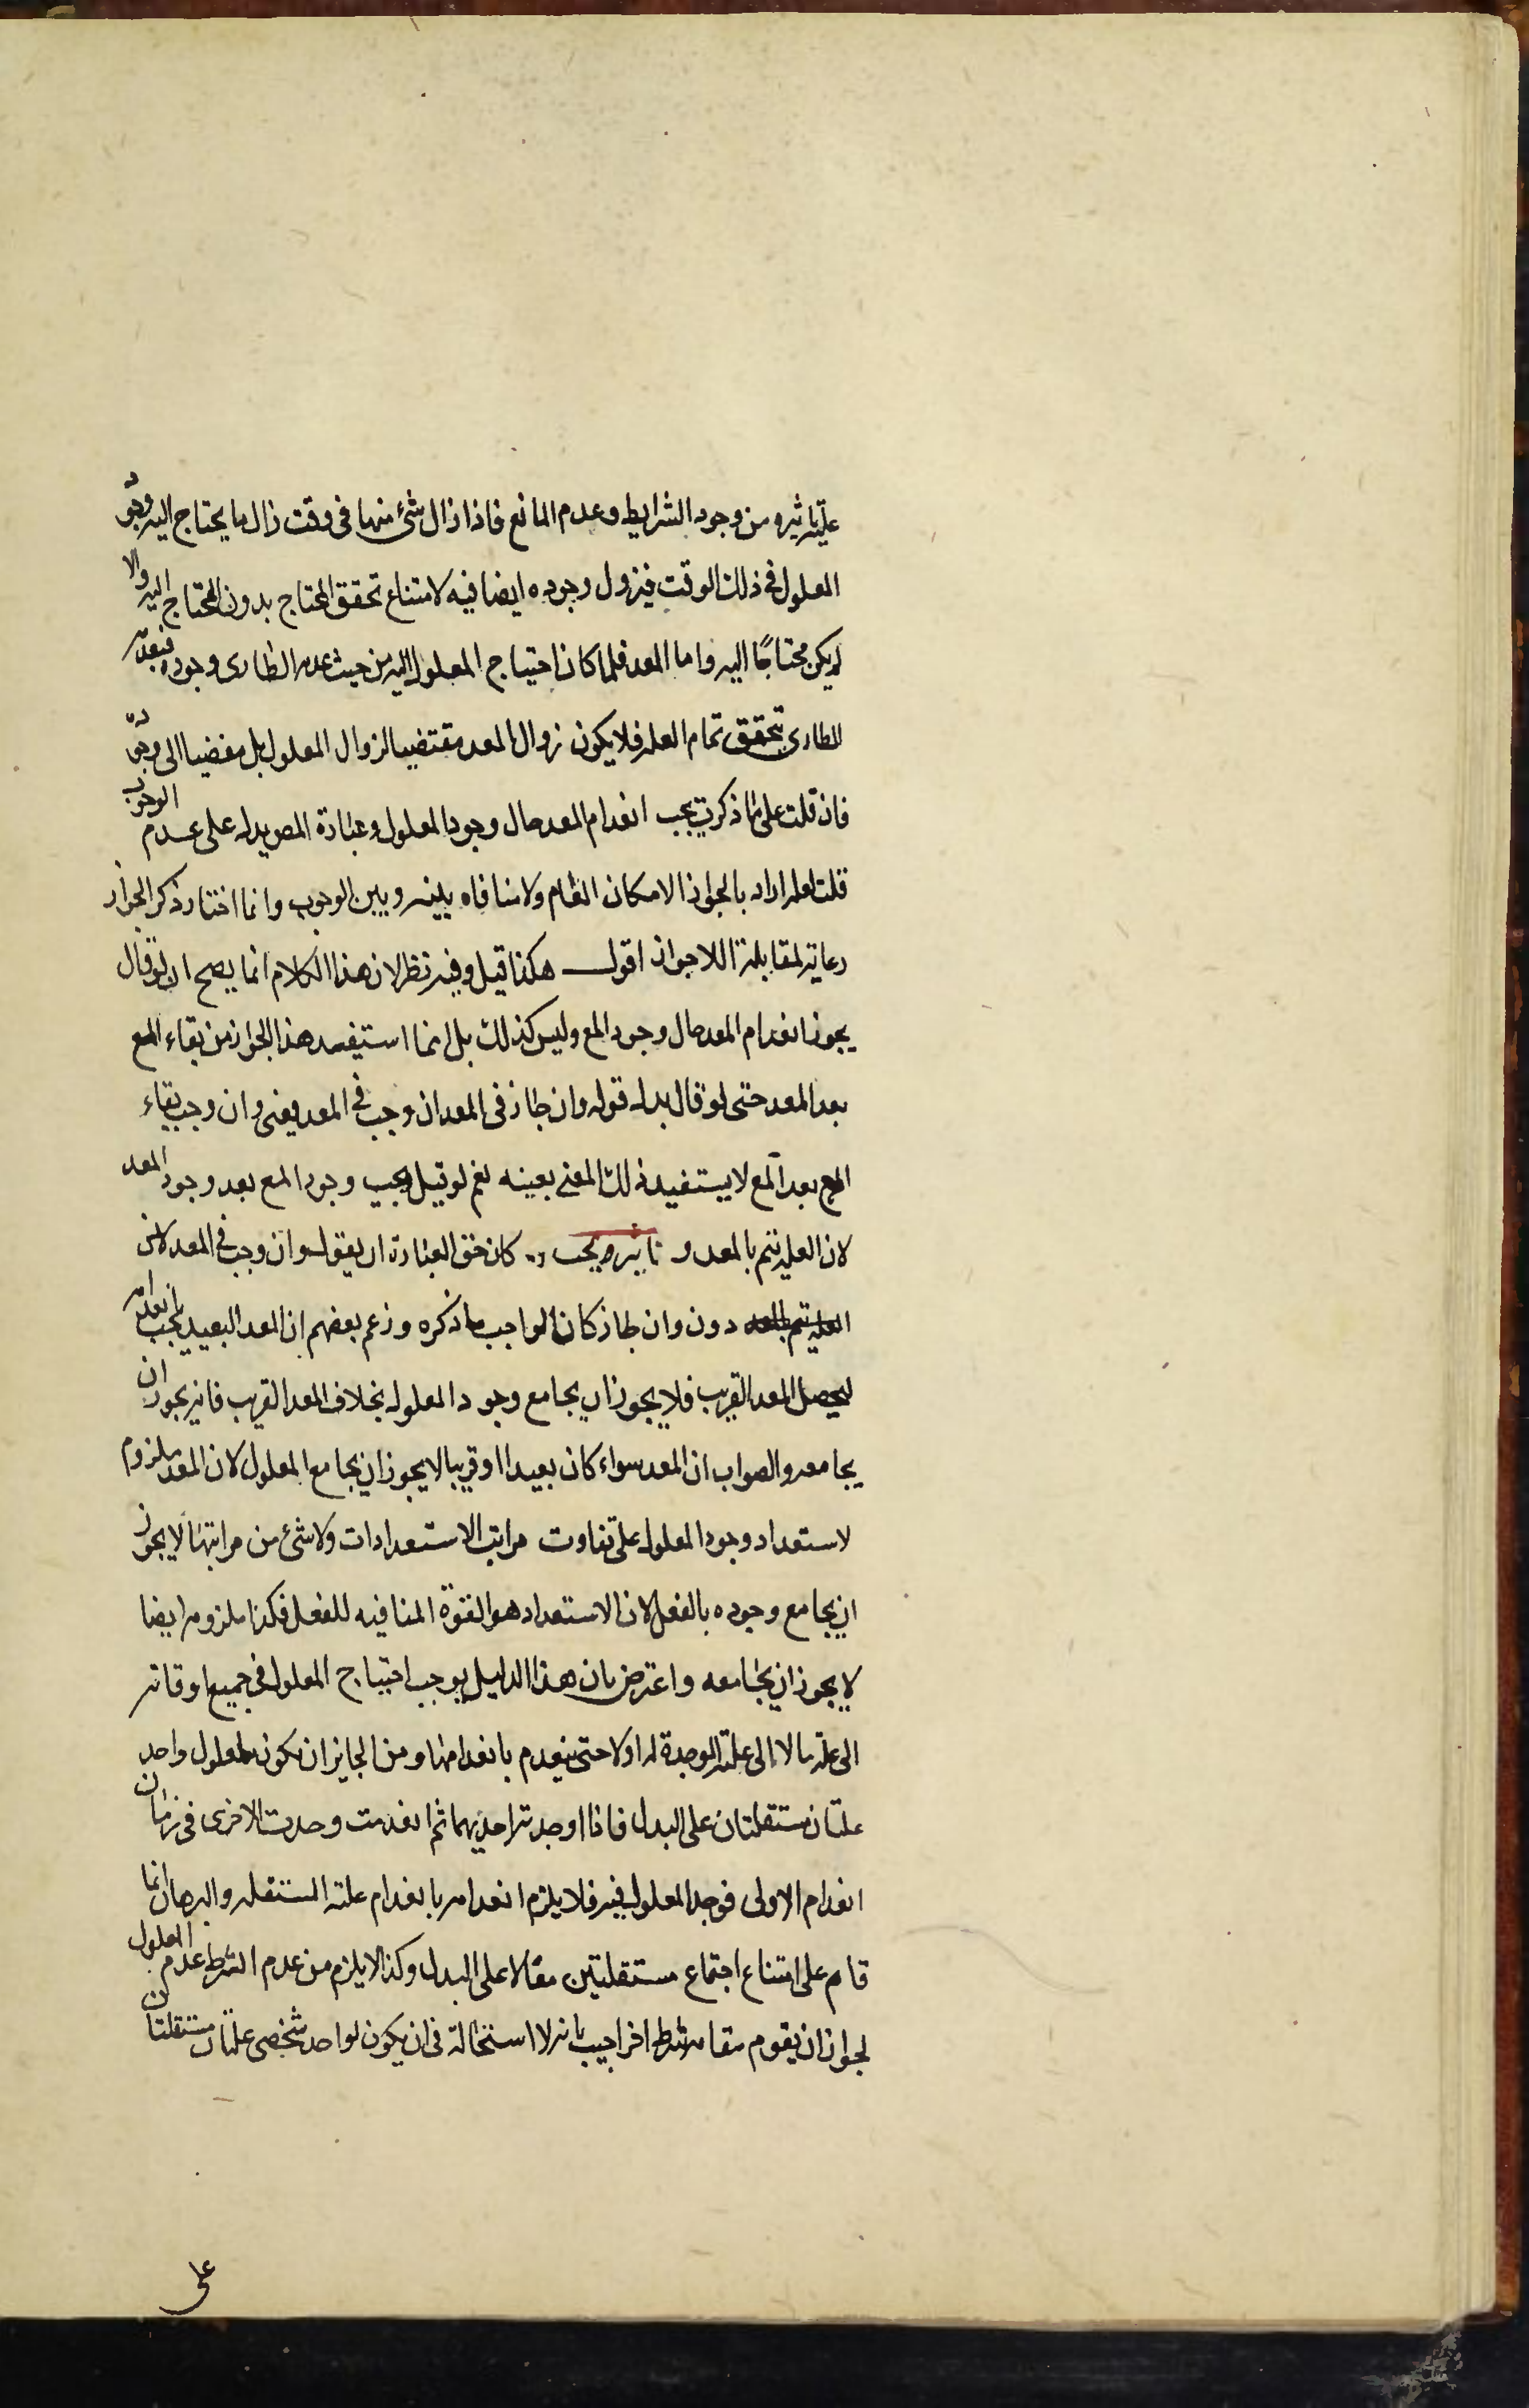 عليه تاثيره من وجود الشرايط وعدم المانع فاذا زال شئ منها فى وقت زال ما يحتاج اليه وجود
المعلول فى ذلك الوقت فيزول وجوده ايضا فيه لامتناع تحقق المحتاج بدون المحتاج اليه والا
لم يكن محتاجًا اليه واما المعد فلما كان احتياج المعلول اليه من حيث عدمه الطارى وجوده فبعدمه
الطارى تحقق تمام العله فلا يكون زوال المعد مقتضيا لزوال المعلول بل مفضيا الى وجوده
فان قلت على ما ذكرت يجب انعدام المعد حال وجود المعلول وعبارة المص يدل على عدم الوجوب
قلت لعله اراد بالجواز الامكان العام ولا منافاه بينه وبين الوجوب وانما اختار ذكر الجواز
رعاية لمقابلة اللاجواز اقول هكذا قيل وفيه نظر لان هذا الكلام انما يصح ان لو قال
يجوز انعدام المعد حال وجود المع وليس كذلك بل انما استفيد هذا الجواز من بقاء المع
بعد المعد حتى لو قال بدل قوله وان جاز فى المعد ان وجب فى المعد يعنى وان وجب بقاء
المع بعد المع لا يستفيد ذلك المعنى بعينه نعم لو قيل يجب وجود المع بعد وجود المعد
لان العليه تتم بالمعد و تاثيره يجب كان حق العبارة ان يقول وان وجب فى المعد لان
العليه تتم بالمعد دون وان جاز كان الواجب ما ذكره وزعم بعضهم ان المعد البعيد يجب انعدامه
ليحصل المعد القريب فلا يجوز ان يجامع وجود المعلول بخلاف المعد القريب فانه يجوز ان
يجامعه والصواب ان المعد سواء كان بعيدا او قريبا لا يجوز ان يجامع المعلول لان المعد ملزوم
لاستعداد وجود المعلول على تفاوت مراتب الاستعدادات ولا شئ من مراتبها لا يجوز
ان يجامع وجوده بالفعل لان الاستعداد هو القوة المنافيه للفعل فكذا ملزومه ايضا
لا يجوز ان يجامعه واعترض بان هذا الدليل يوجب احتياج المعلول فى جميع اوقاته
الى علة ما لا الى علته الموجدة له اولا حتى ينعدم بانعدامها ومن الجايز ان يكون لمعلول واحد
علتان مستقلتان على البدل فاذا اوجدته احديهما ثم انعدمت وحدثت الاخرى فى زمان
انعدام الاولى فوجد المعلول فيه فلا يلزم انعدامه بانعدام علته المستقله والبرهان انما
قام على امتناع اجتماع مستقلتين معًا لا على البدل وكذا لا يلزم من عدم الشرط عدم المعلول
لجواز ان يقوم مقامه شرط اخر اجيب بانه لا استحالة فى ان يكون لواحد شخصى علتان مستقلتان
على